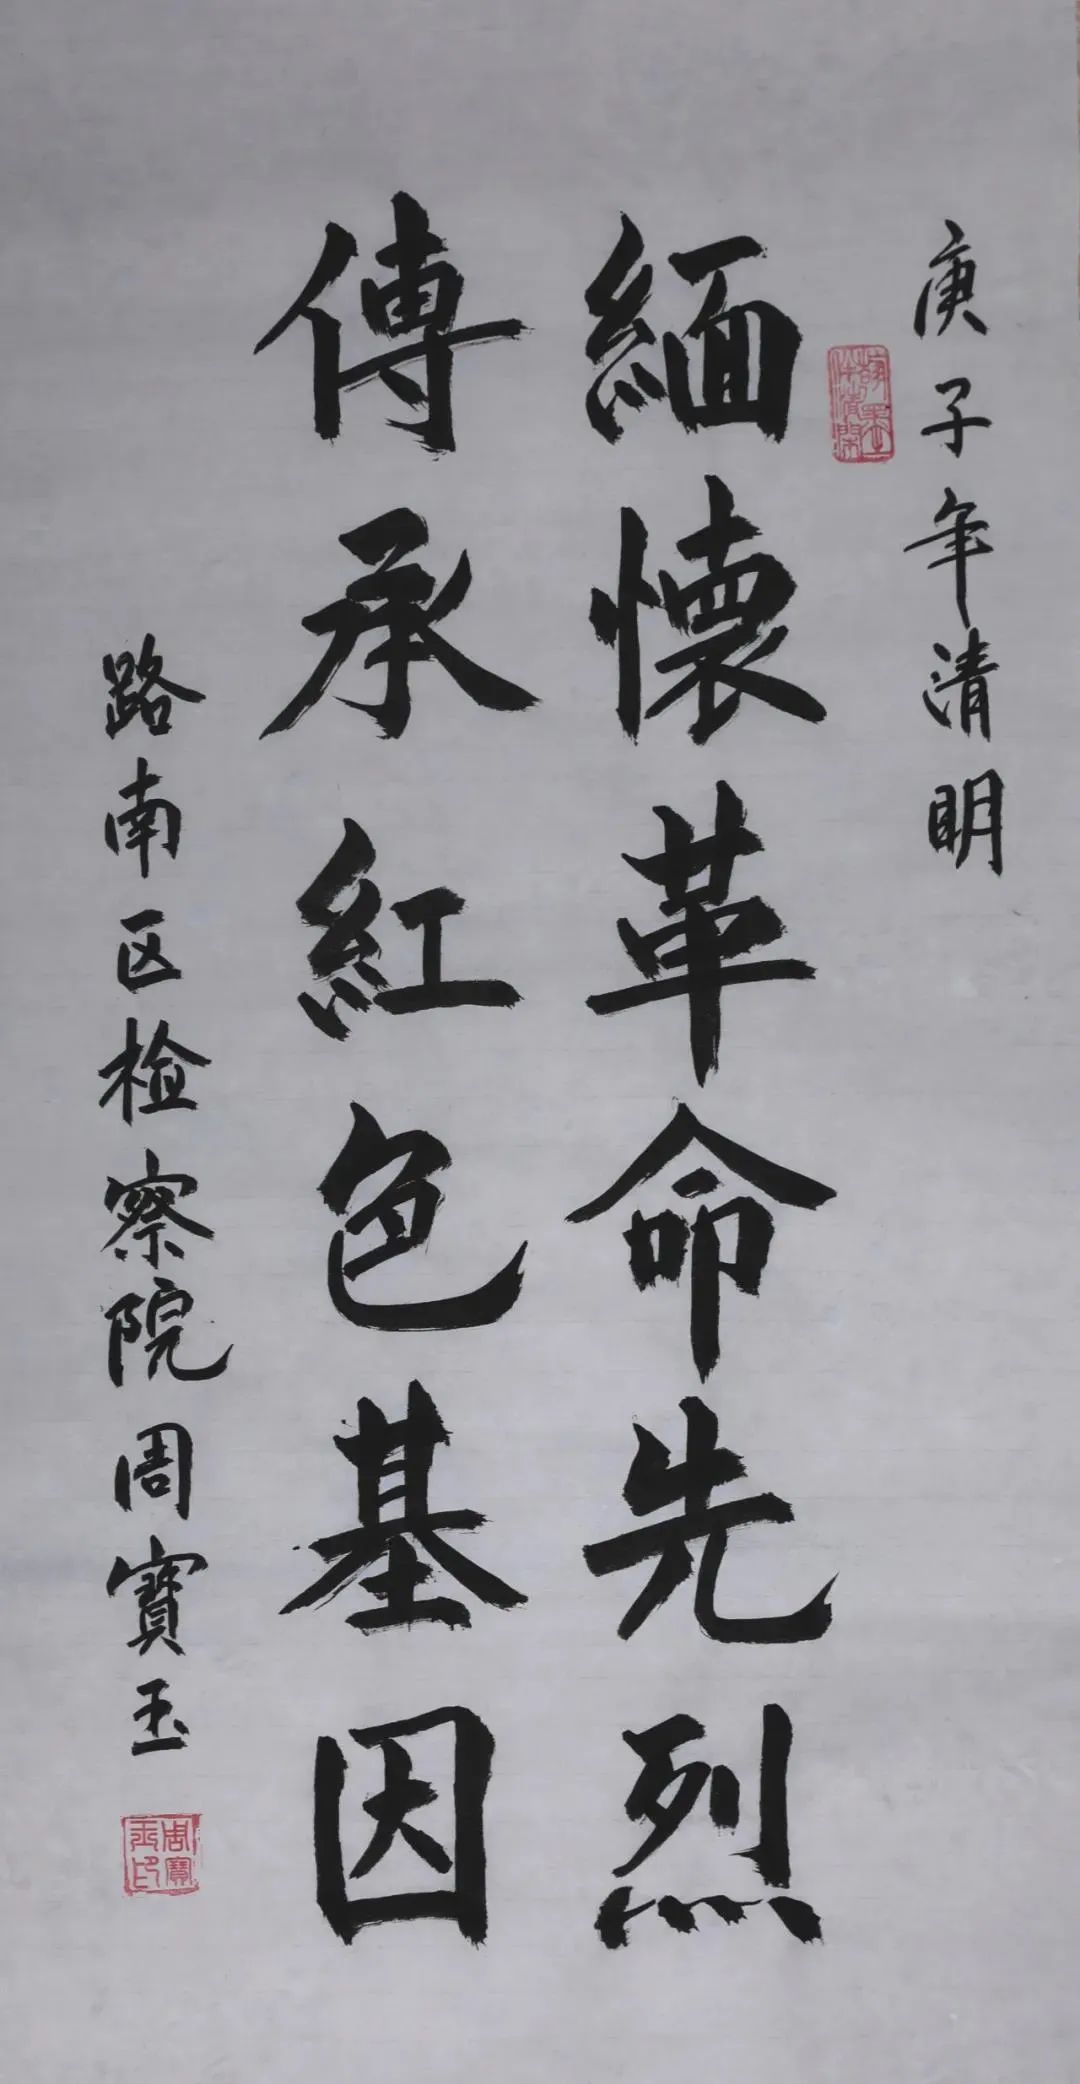 庚子年清明
緬懷革命先烈
傳承紅色基因
路南区检察院周寳玉
周寳玉印